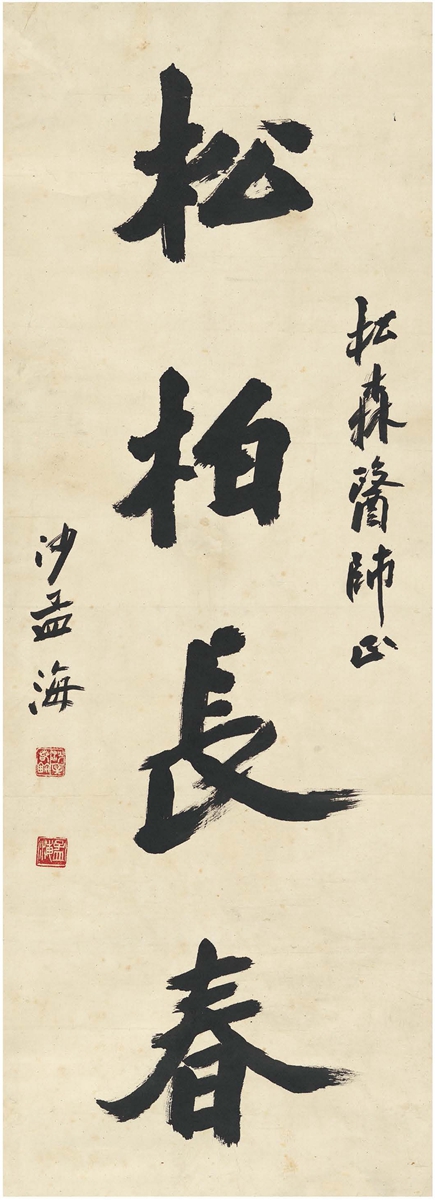 松森醫師正
松柏長春
沙孟海
孟海